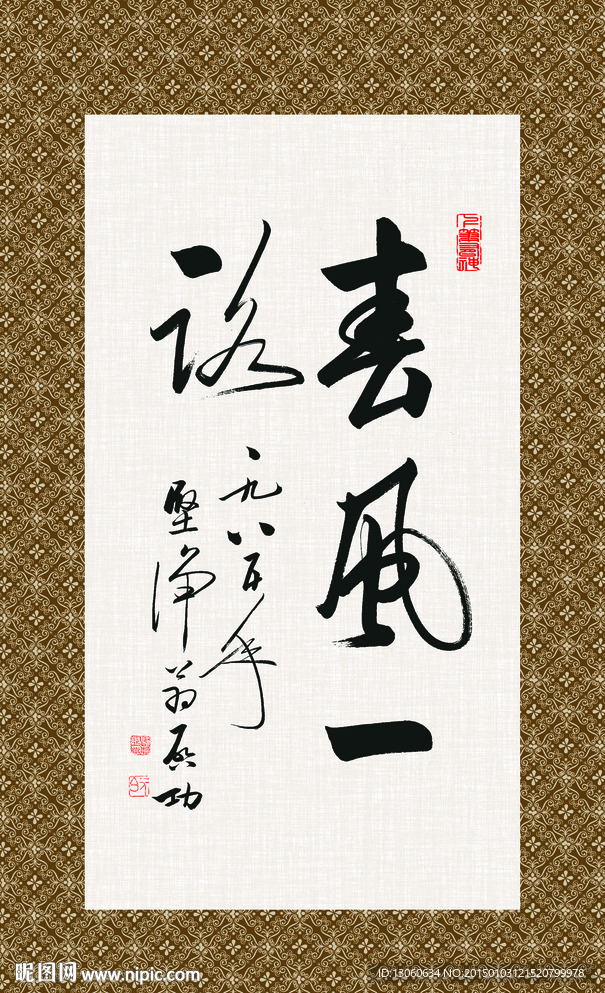 春風一
路
一九八五年
堅净翁启功
昵图网 www.nipic.com
ID:13060634 NO:20150103121520799978